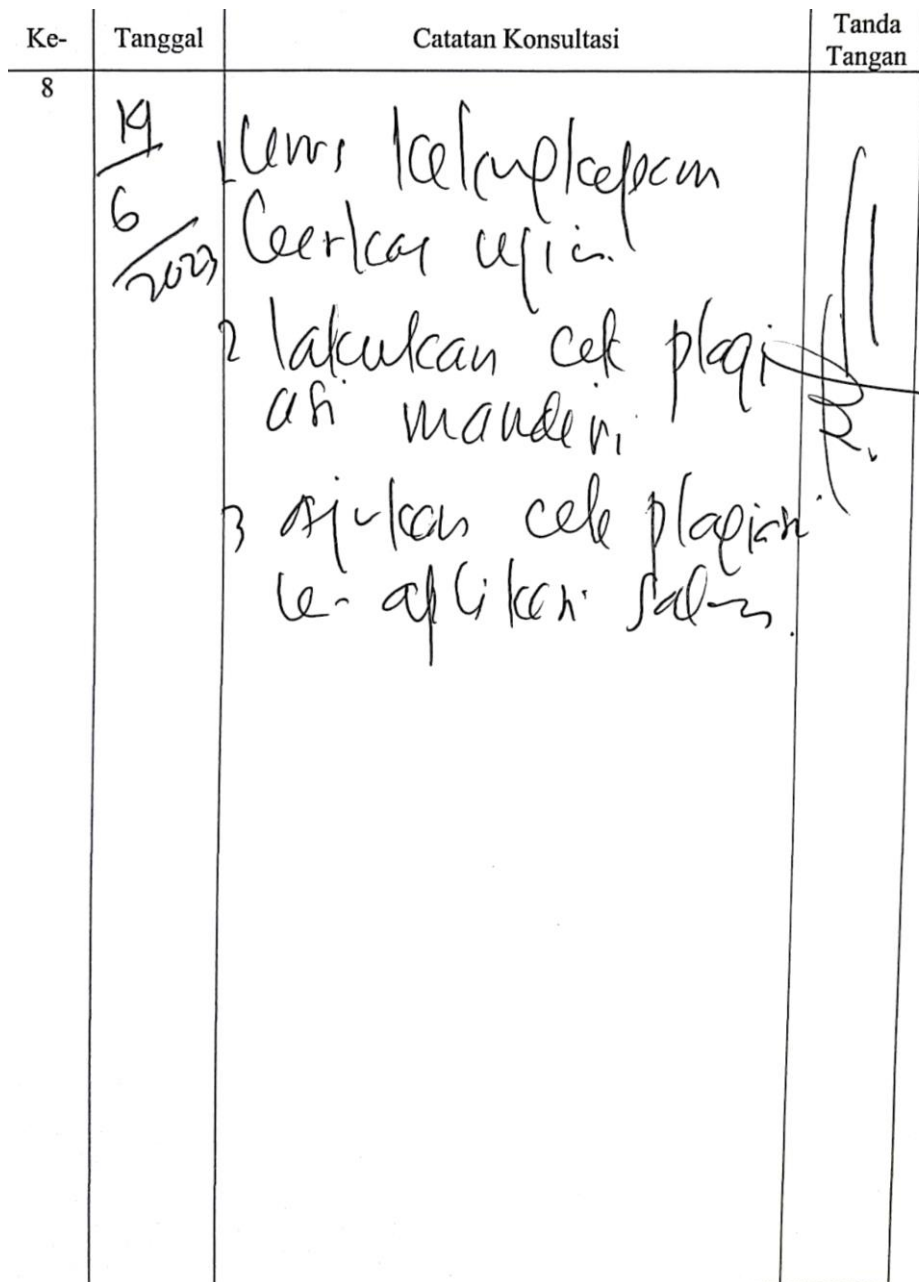 Ke- Tanggal Catatan Konsultasi Tanda Tangan
8
19/6/2023
1. Urus kelengkapan
berkas ujian.
2 lakukan cek plagi
asi mandiri
3 ajukan cek plagiasi
ke aplikasi